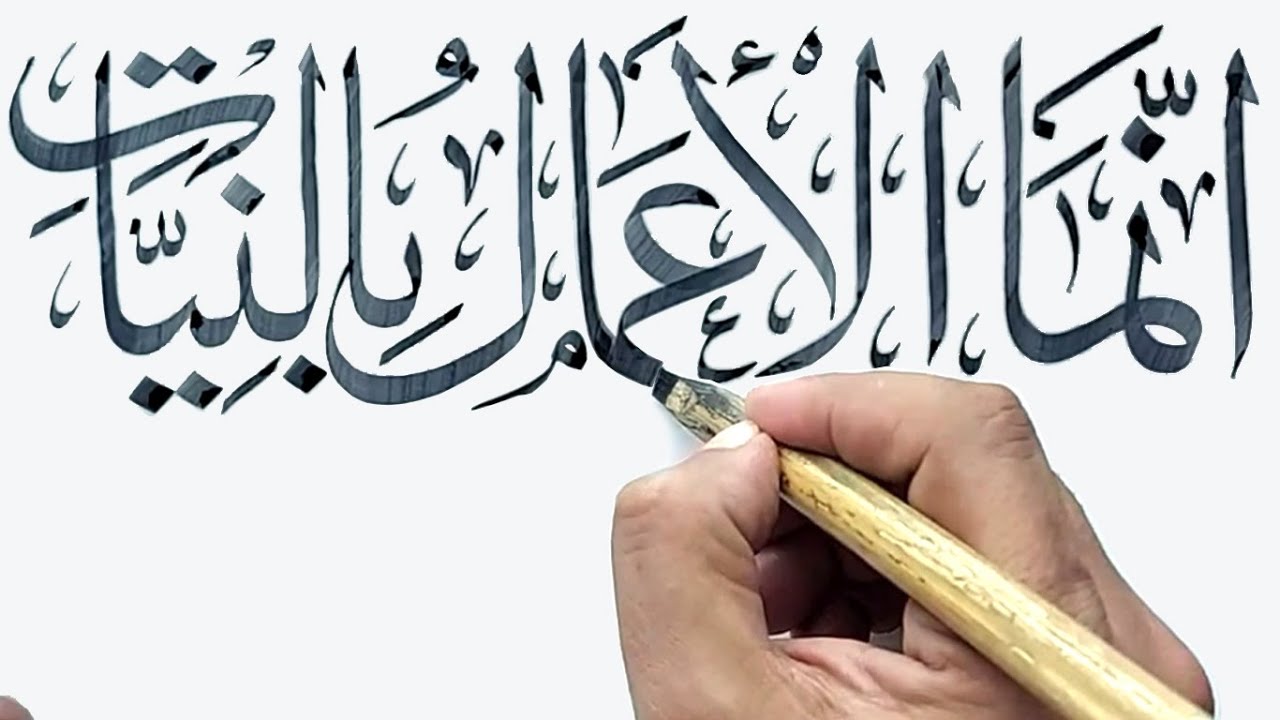 انَّمَا الْأَعْمَالُ بِالنِّيَّاتِ